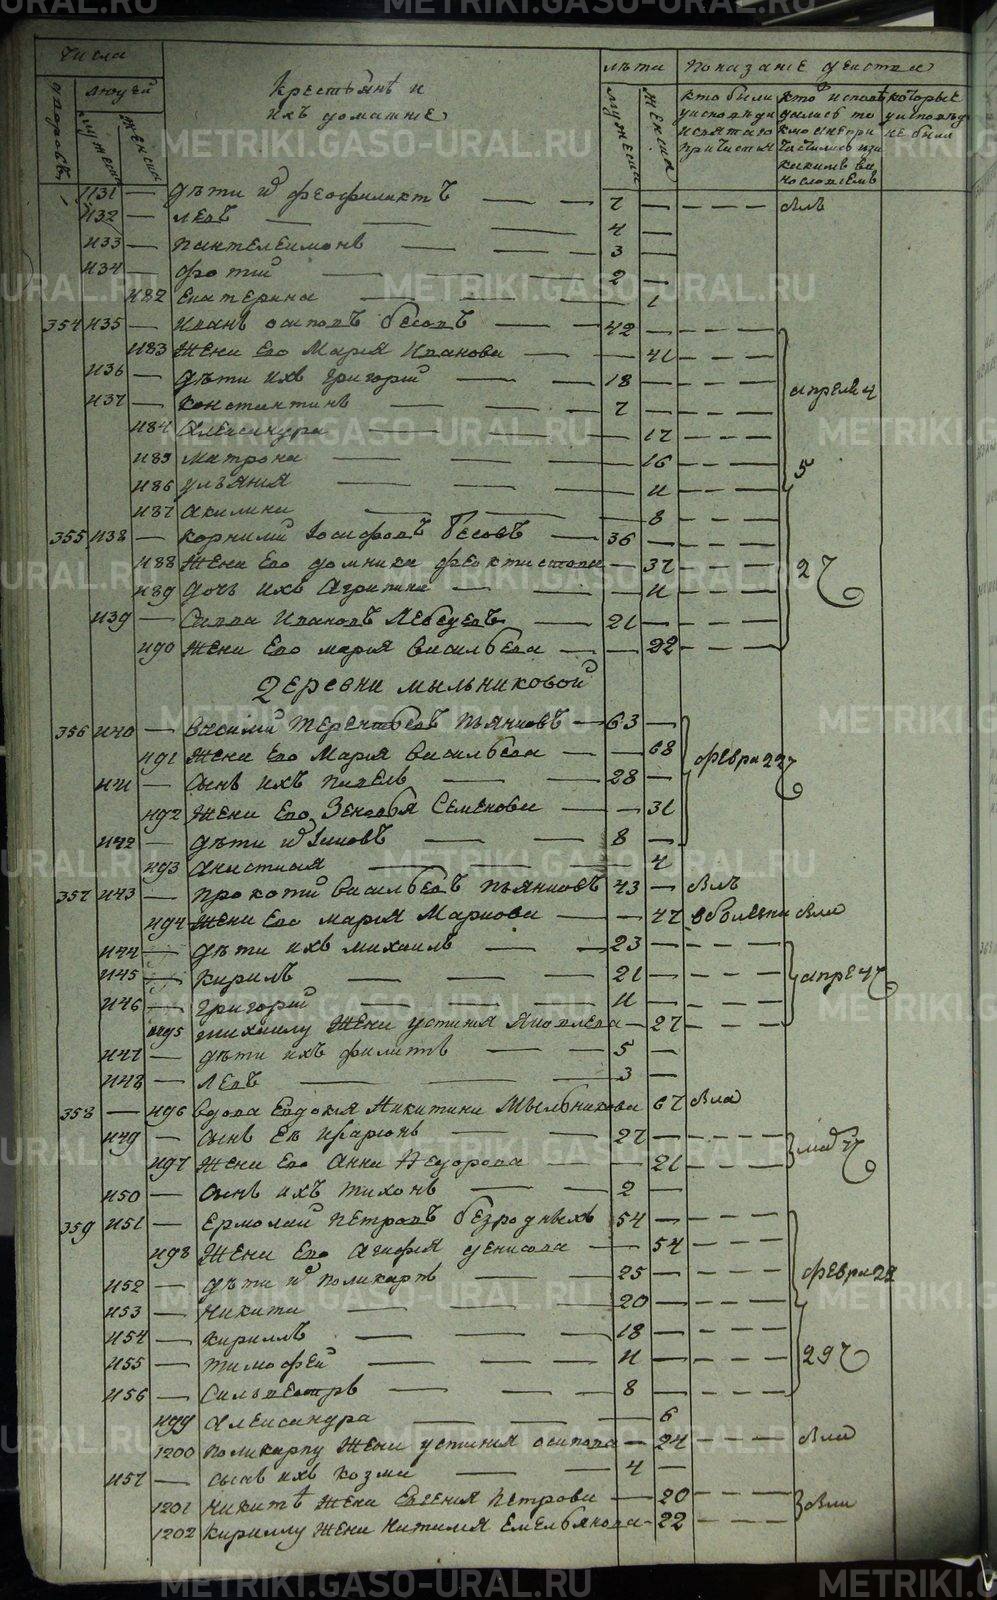 Числа
лѣта Показанiе дѣйства
дворовъ людей
мужеска женска
Крестьянѣ и
ихъ домашнiе
мужеска женска
кто были у исповѣди и святаго причастiя
кто исповѣдались то кмо а не причастились и за какимъ винословiемъ
которые у исповѣди не были
1131 — дѣти их Феофилактъ — — 7 — — — — былъ
1132 — Левъ — — 4 —
1133 — Пантелеимонъ — — 3 —
1134 — Фотiй — — — 2 —
1182 Екатерина — — — 1
354 1135 — Иванъ осиповъ бѣсовъ — — 42 — — — —
1183 Жена Его Марiя Иванова — — — 41 — — —
1136 — дѣти ихъ Григорiй — — 18 — — — — апреля 4
1137 — Констинтинъ — — — 7 — — — —
1184 Александра — — — 17 — — —
1185 Матрона — — — 16 — — — 5
1186 Ульянiя — — — 11 — — —
1187 Акилина — — — 8 — — —
355 1138 — Корнилий Iосифовъ бѣсовъ — 36 — — — —
1188 Жена Его домника Феоктистова — 37 — — — 27
1189 Дочь ихъ Агрипина — — — 11 — — —
1139 — Савва Ивановъ Лебедевъ — 21 — — — —
1190 Жена Его марiя васильева — — 22 — — —
Деревни мыльниковой
356 1140 — Василий Терентьевъ Пьянковъ — 63 —
1191 Жена Его Марiя Васильева — — 68 февра 227
1141 — Сынъ ихъ Павелъ — — 28 —
1192 Жена Его Зеновья Семенова — — 31
1142 — дѣти их Iаковъ — — 8 —
1193 Анастасiя — — — 4
357 1143 — Прокопiй Васильевъ Пьянковъ 43 — былъ
1194 Жена Его марiя Маркова — — 47 в болѣзни была
1144 — дѣти ихъ михаилъ — — 23 — — — —
1145 — Кирилъ — — — 21 — — — — апре 47
1146 — Григорiй — — — 11 — — — —
1195 михаилу Жена устинiя Яковлева — 27 — — —
1147 — дѣти ихъ филипъ — — 5 —
1148 — Левъ — — — 3 —
358 — 1196 вдова Евдокiя Никитина Мыльникова 67 была
1149 — Сынъ Ея Иларионъ — — 27 — — — —
1197 Жена Его Анна Федорова — — 21 — — — май 77
1150 — Сынъ ихъ Тихонъ — — 2 —
359 1151 — Ермолай Петровъ безродныхъ 54 — — — —
1198 Жена Его Агафiя денисова — 54 — — —
1152 — дѣти их Поликарпъ — — 25 — — — — февра 28
1153 — Никита — — — 20 — — — —
1154 — Кириллъ — — — 18 — — — —
1155 — Тимофей — — — 11 — — — — 297
1156 — Сильвестръ — — — 8 — — — —
1199 Александра — — — 6
1200 Поликарпу Жена устинiя осипова — 24 — — — была
1157 — Сынъ ихъ Козма — — 4 —
1201 Никитѣ Жена Евгения Петрова — 20 — — — была
1202 Кириллу Жена Наталiя Емельянова — 22 — — —
METRIKI.GASO-URAL.RU